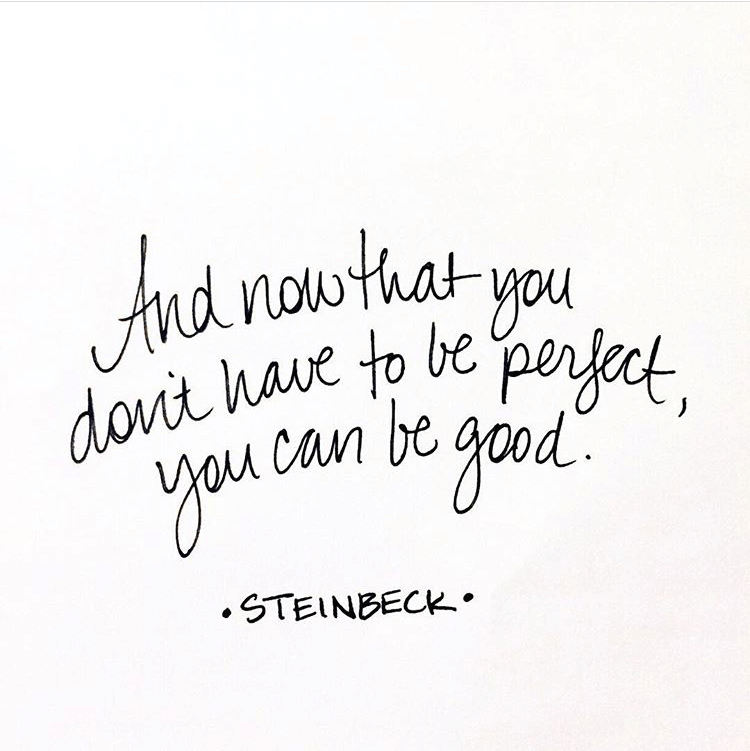 And now that you
don't have to be perfect,
you can be good.
•STEINBECK•